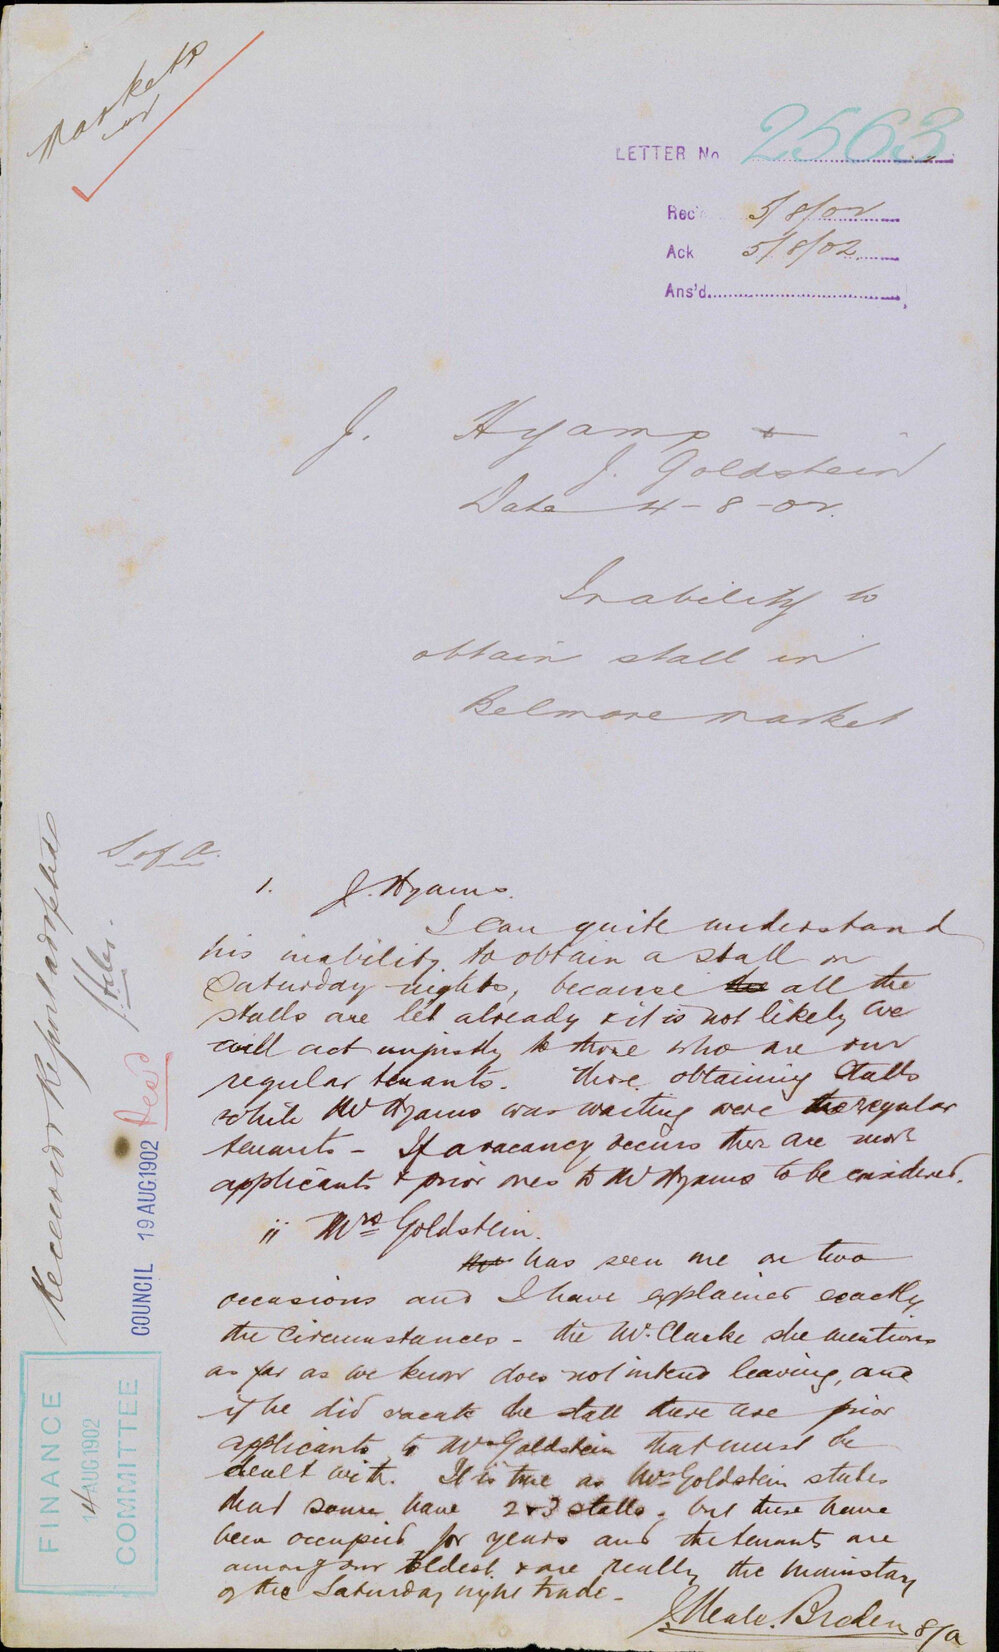 Markets
LETTER No 2563
Rec'd 5/8/02
Ack 5/8/02
Ans'd
J. Hyams &
J. Goldstein
Date 4-8-02.
Inability to
obtain stall in
Belmore Market
S of A.
1. J. Hyams.
I can quite understand
his inability to obtain a stall on
Saturday nights, because the all the
stalls are let already & it is not likely we
will act unjustly to those who are our
regular tenants. Those obtaining Stalls
while Mr Hyams was waiting were the regular
tenants - If a vacancy occurs there are more
applicants & prior ones to Mr Hyams to be considered.
ii Mrs Goldstein.
has seen me on two
occasions and I have explained exactly
the Circumstances - the Mr. Clarke she mentions
as far as we know does not intend leaving, and
if he did vacate the stall there are prior
applicants to Mrs Goldstein that must be
dealt with. It is true as Mrs Goldstein states
that some have 2 & 3 stalls, but these have
been occupied for years and the tenants are
among our oldest & are really the mainstay
of the Saturday night trade -
Broden 8/a
Received Report adopted
COUNCIL 19 AUG 1902
FINANCE
14 AUG 1902
COMMITTEE